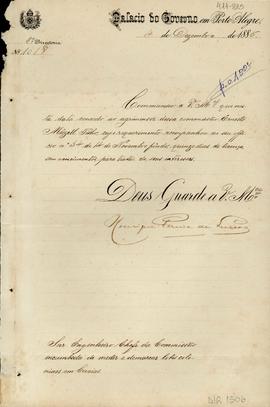 474-885
Palacio do Governo em Porto Alegre,
de Dezembro de 1886
p.a 1002
Nº 1018
Communico a Vª Mce que nes
ta data concedo ao agrimensor dessa commissão Ernesto
Filho, cujo requerimento acompanhou ao seu offi
cio nº de de Novembro findo, quinze dias de licença
sem vencimentos, para tratar de seus interesses.
Deus Guarde a Vª Mce
Henrique Pereira de Lucena
Snr Engenheiro Chefe da Commissão
incumbida de medir e demarcar lotes colo
niaes em Caxias
DIR 1506